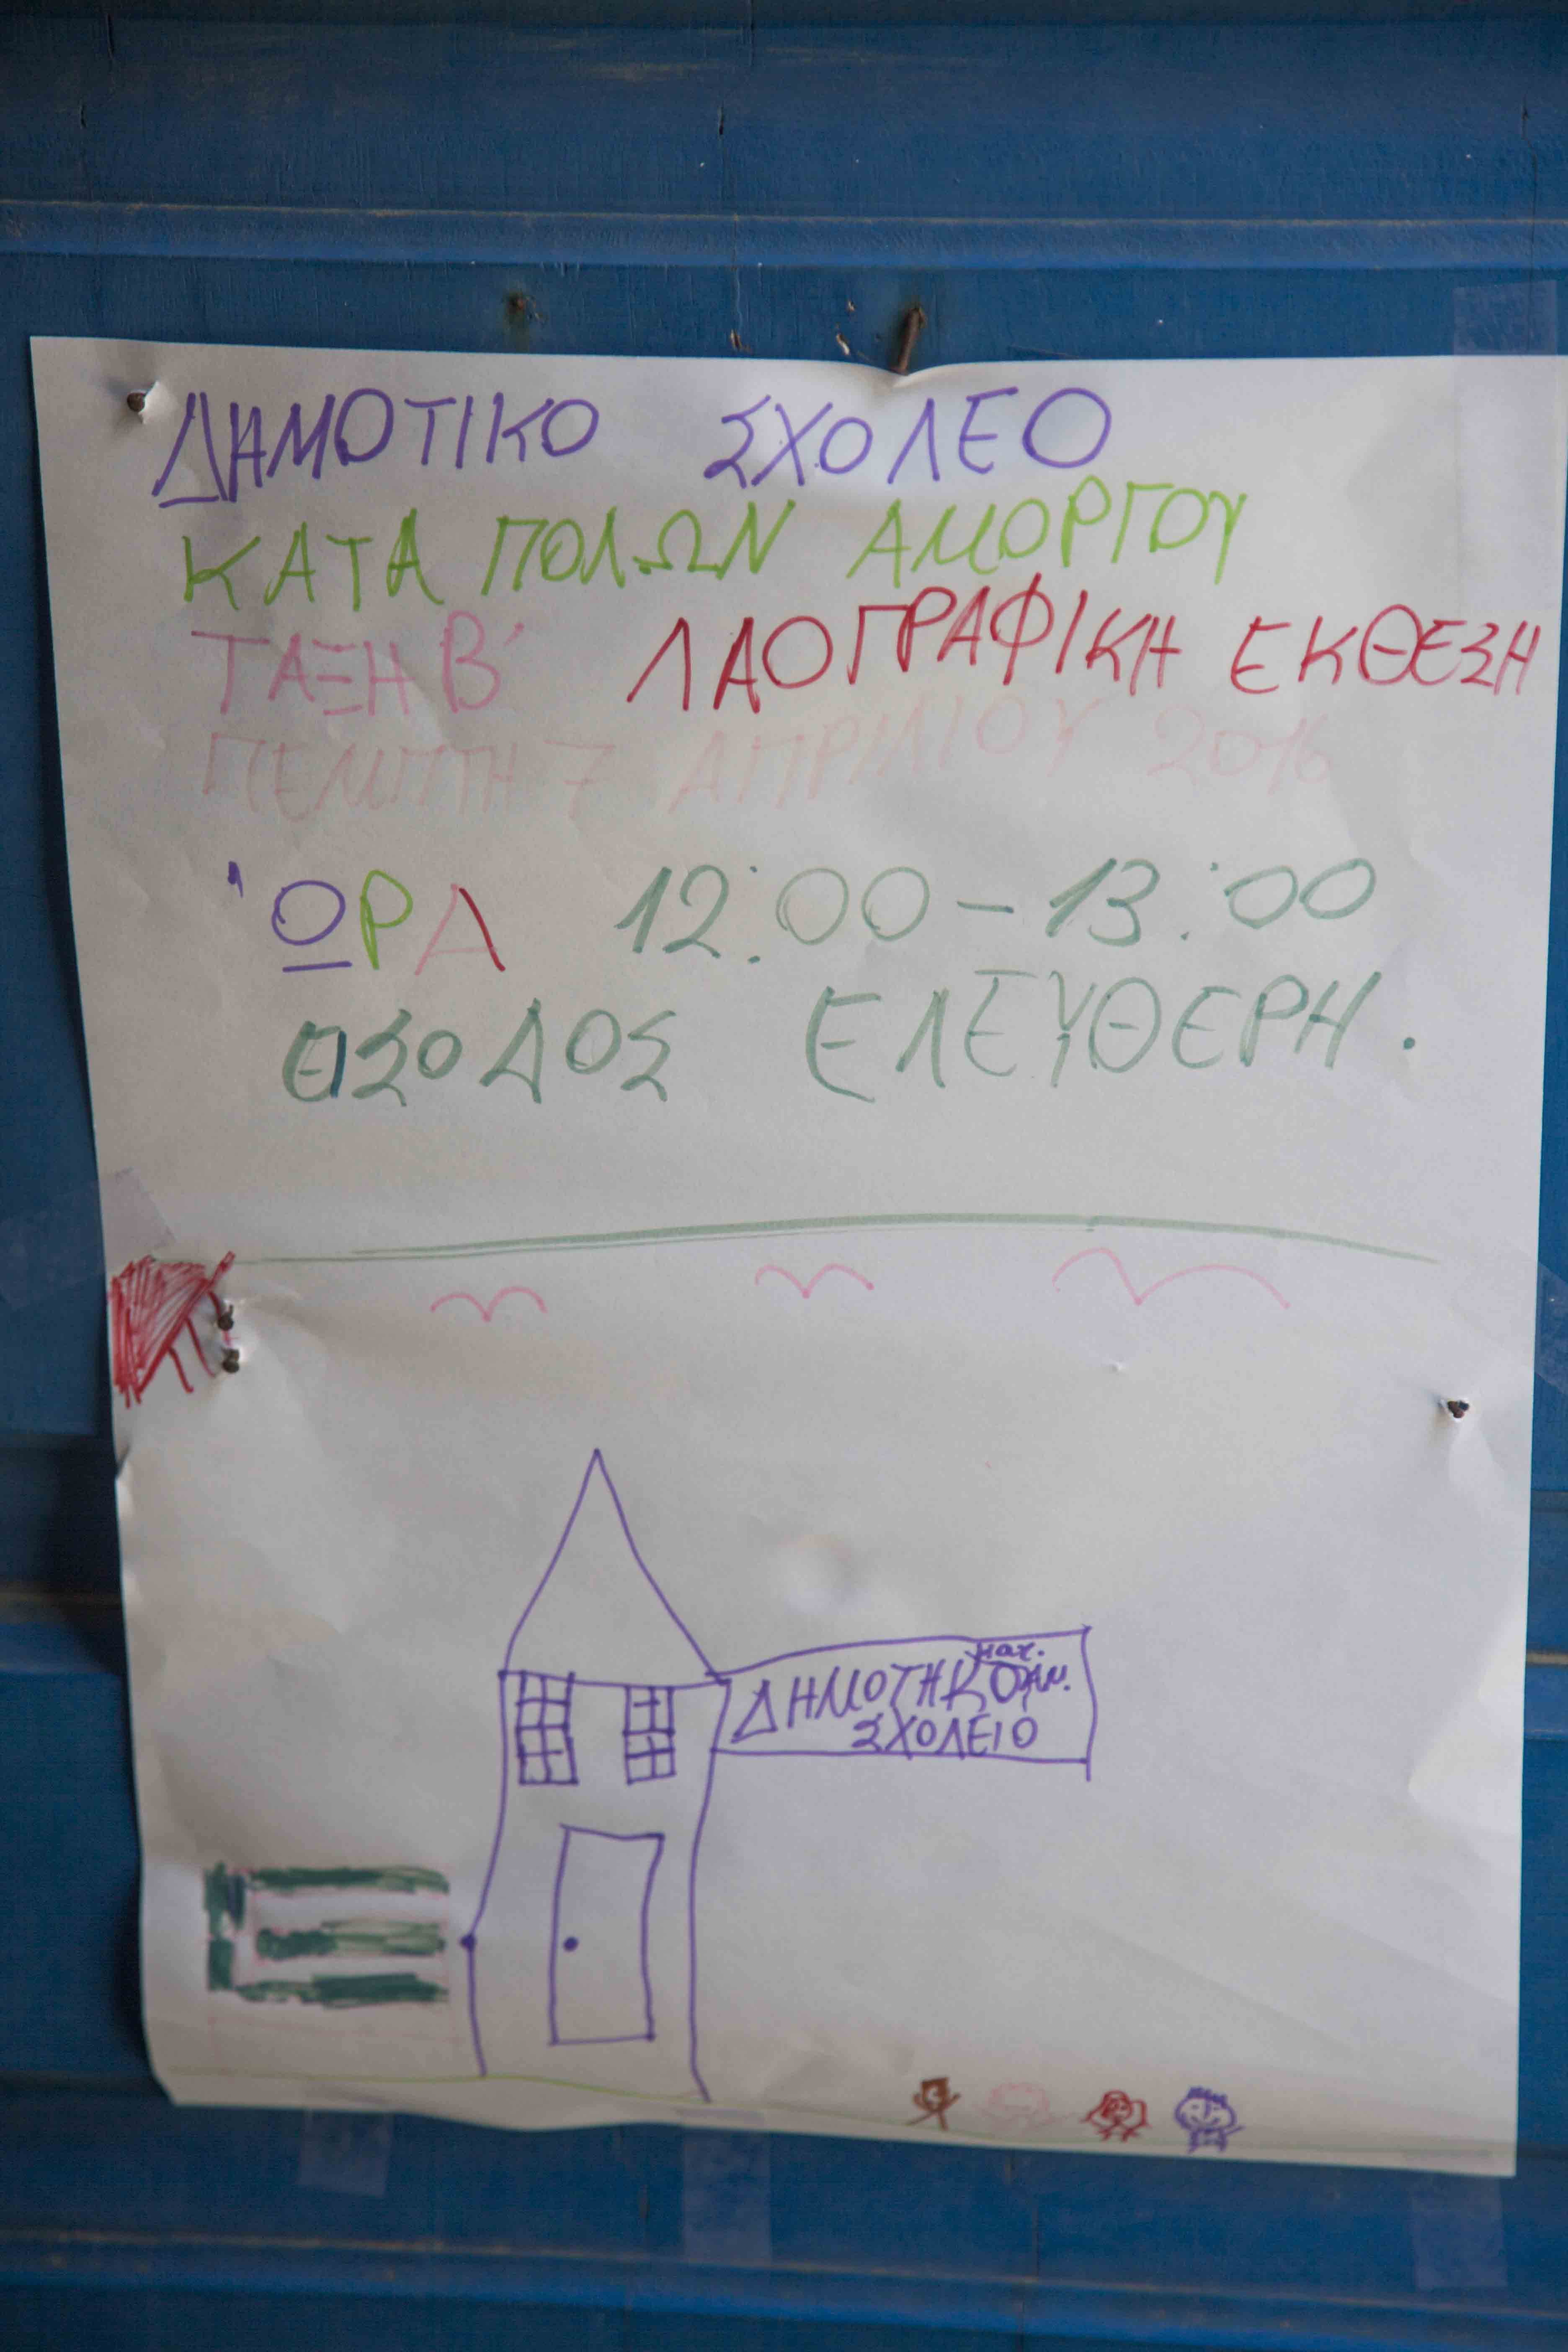 ΔΗΜΟΤΙΚΟ ΣΧΟΛΕΟ
ΚΑΤΑ ΠΟΛΩΝ ΑΜΟΡΓΟΥ
ΤΑΞΗ Β΄ ΛΑΟΓΡΑΦΙΚΗ ΕΚΘΕΣΗ
ΠΕΜΠΤΗ 7 ΑΠΡΙΛΙΟΥ 2016
'ΩΡΑ 12:00 - 13:00
ΕΙΣΟΔΟΣ ΕΛΕΥΘΕΡΗ.
ΔΗΜΟΤΗΚΟ
ΣΧΟΛΕΙΟ